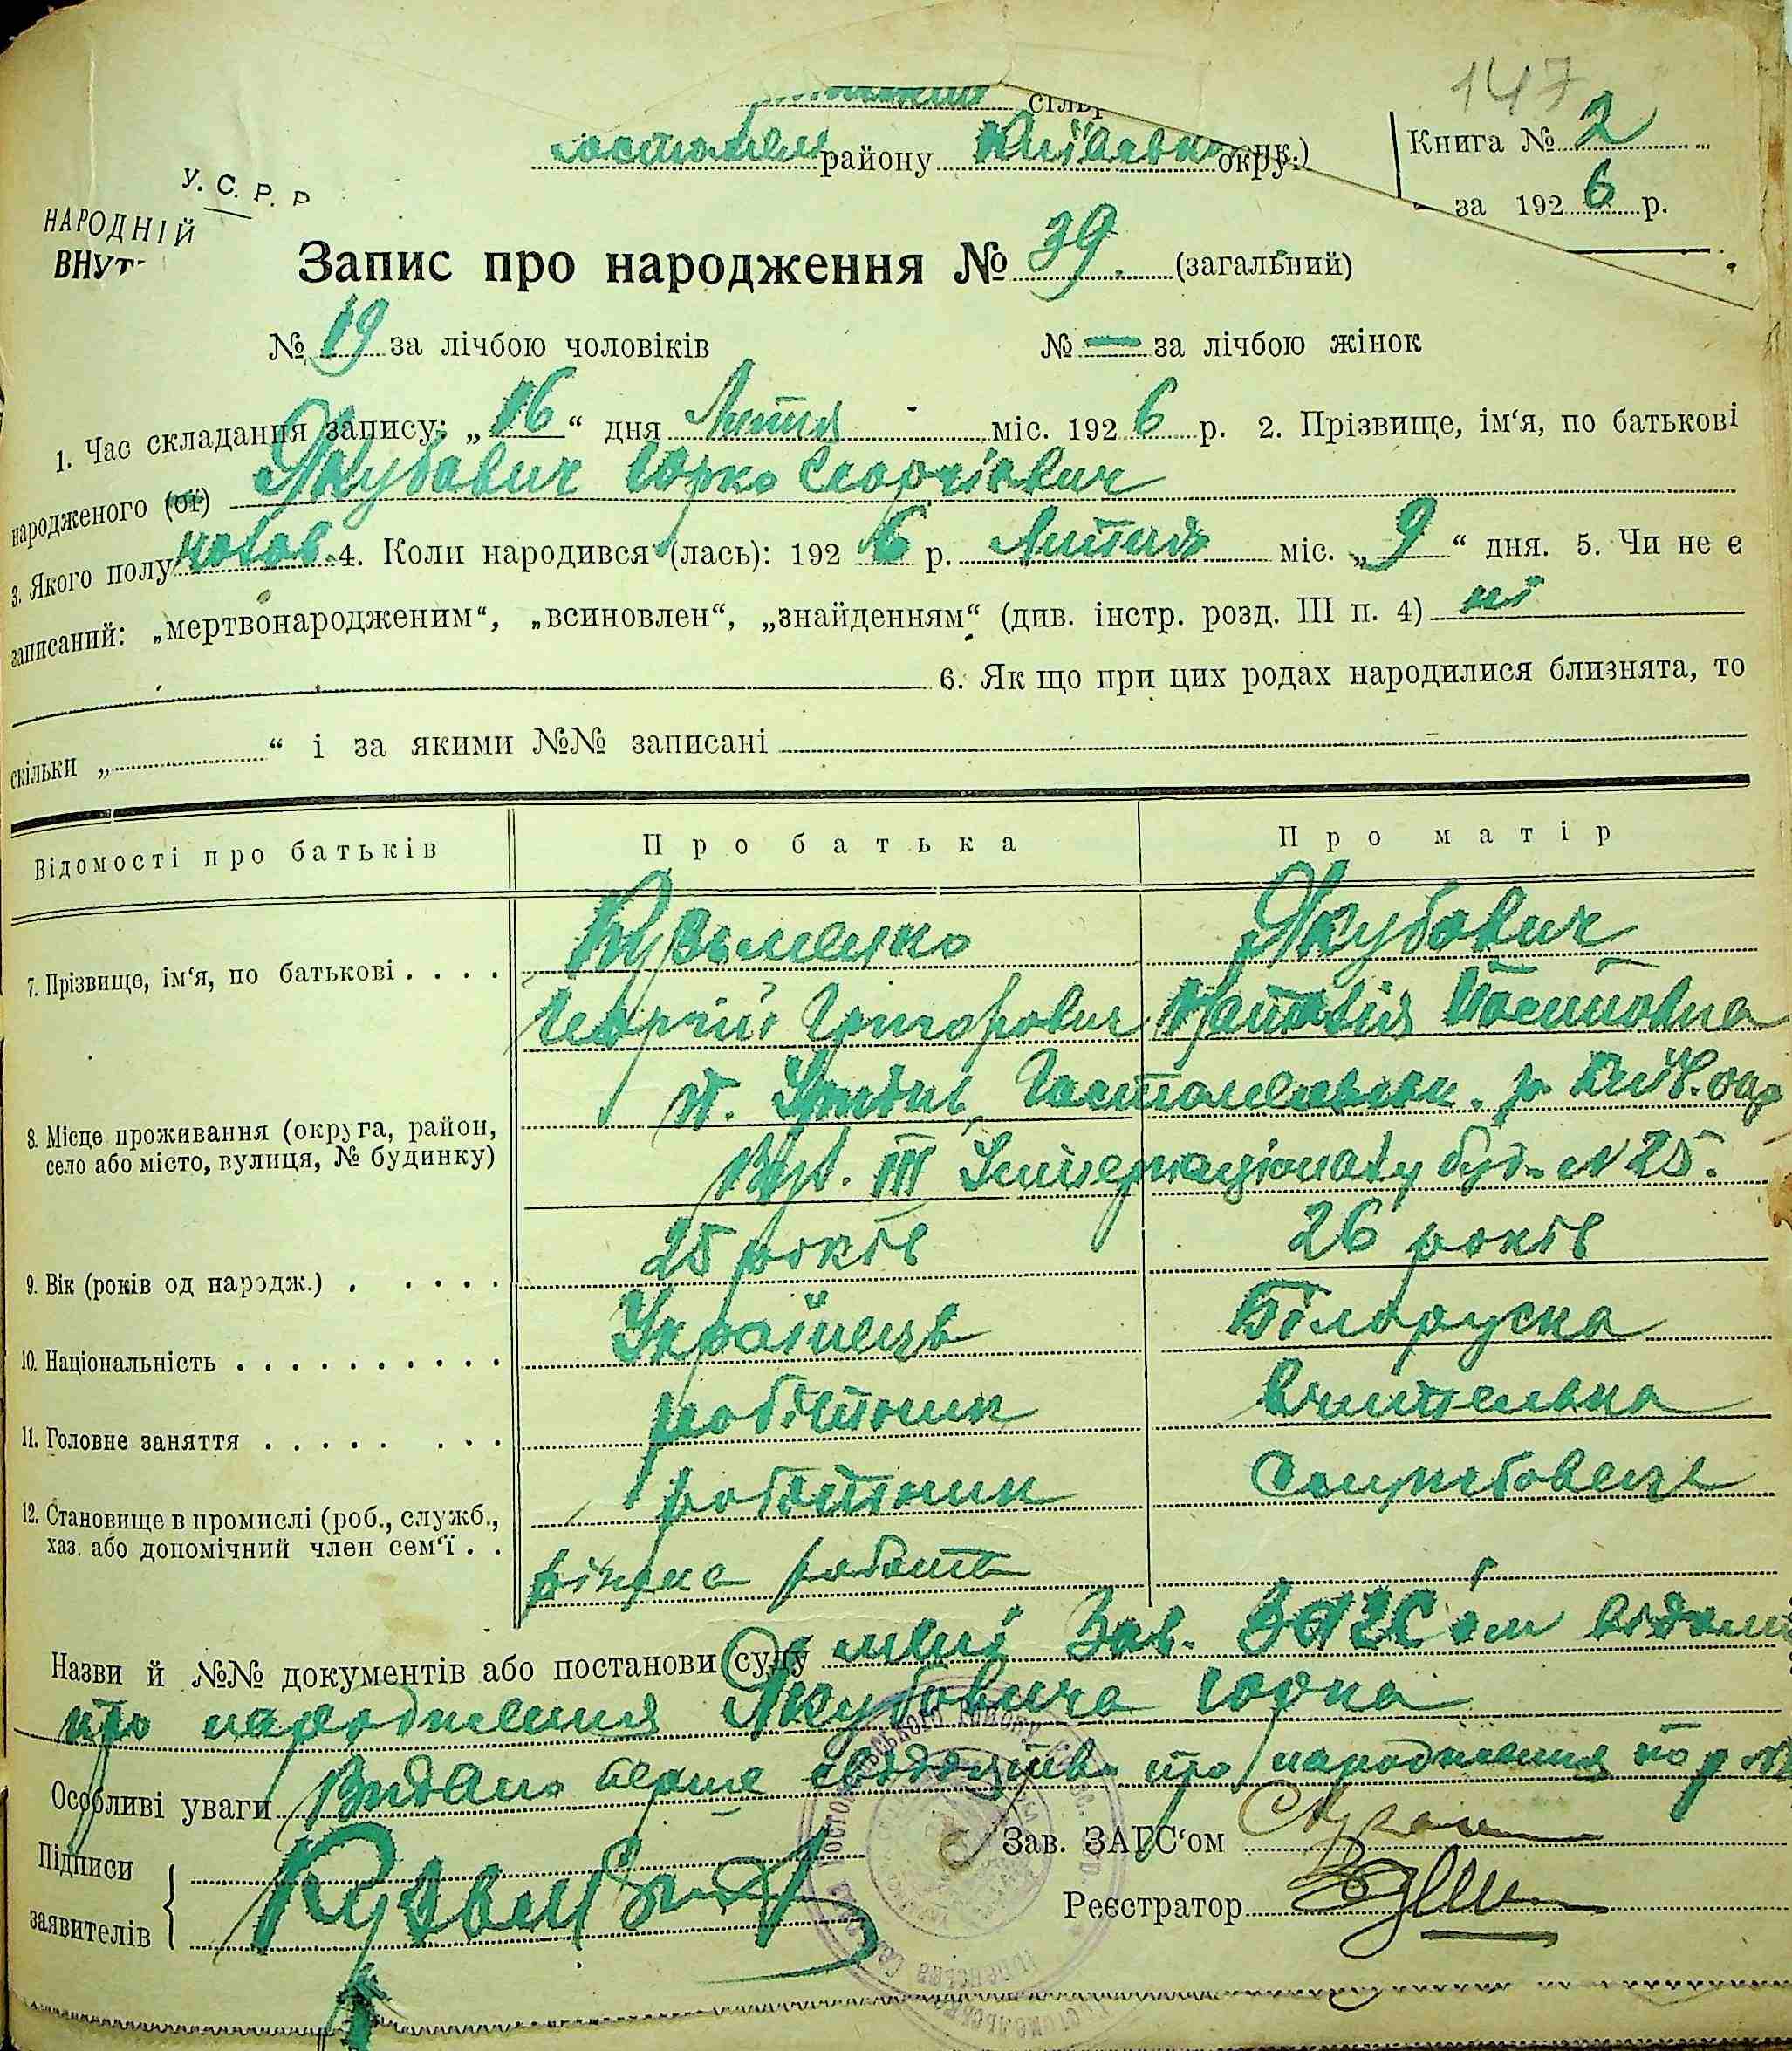 147
сіль
Гостомельс району Київськ округ.)
Книга № 2
У. С. Р. Р
за 1926 р.
НАРОДНІЙ
ВНУТ
Запис про народження № 39. (загальний)
№ 19 за лічбою чоловіків № — за лічбою жінок
1. Час складання запису: „16“ дня Липня міс. 1926 р. 2. Прізвище, ім‘я, по батькові
народженого (ої) Якубович Юрко Георгієвич
3. Якого полу чолов. 4. Коли народився (лась): 1926 р. Липня міс. „9“ дня. 5. Чи не є
записаний: „мертвонародженим“, „всиновлен“, „знайденням“ (див. інстр. розд. III п. 4) ні
6. Як що при цих родах народилися близнята, то
скільки „ “ і за якими №№ записані
Відомості про батьків Про батька Про матір
7. Прізвище, ім‘я, по батькові . . . . Кузьменко Якубович
Георгій Григорович Осиповна
8. Місце проживання (округа, район, ст. Ірпінь Гостомельськ. р. Київ. окр
село або місто, вулиця, № будинку) Вул. III Інтернаціоналу буд. № 25.
9. Вік (років од народж.) . . . . . 25 років 26 років
10. Національність . . . . . . . . . . Українець Білоруска
11. Головне заняття . . . . . . . . робітник вчителька
12. Становище в промислі (роб., служб., робітник Службовець
хаз. або допомічний член сем‘ї . . різна робота
Назви й №№ документів або постанови суду мені Зав. ЗАГС‘ом відомо
про народження Якубовича Юрка
Особливі уваги Видано перше свідоцтво про народження под №
Підписи
заявителів
Зав. ЗАГС‘ом
Реєстратор